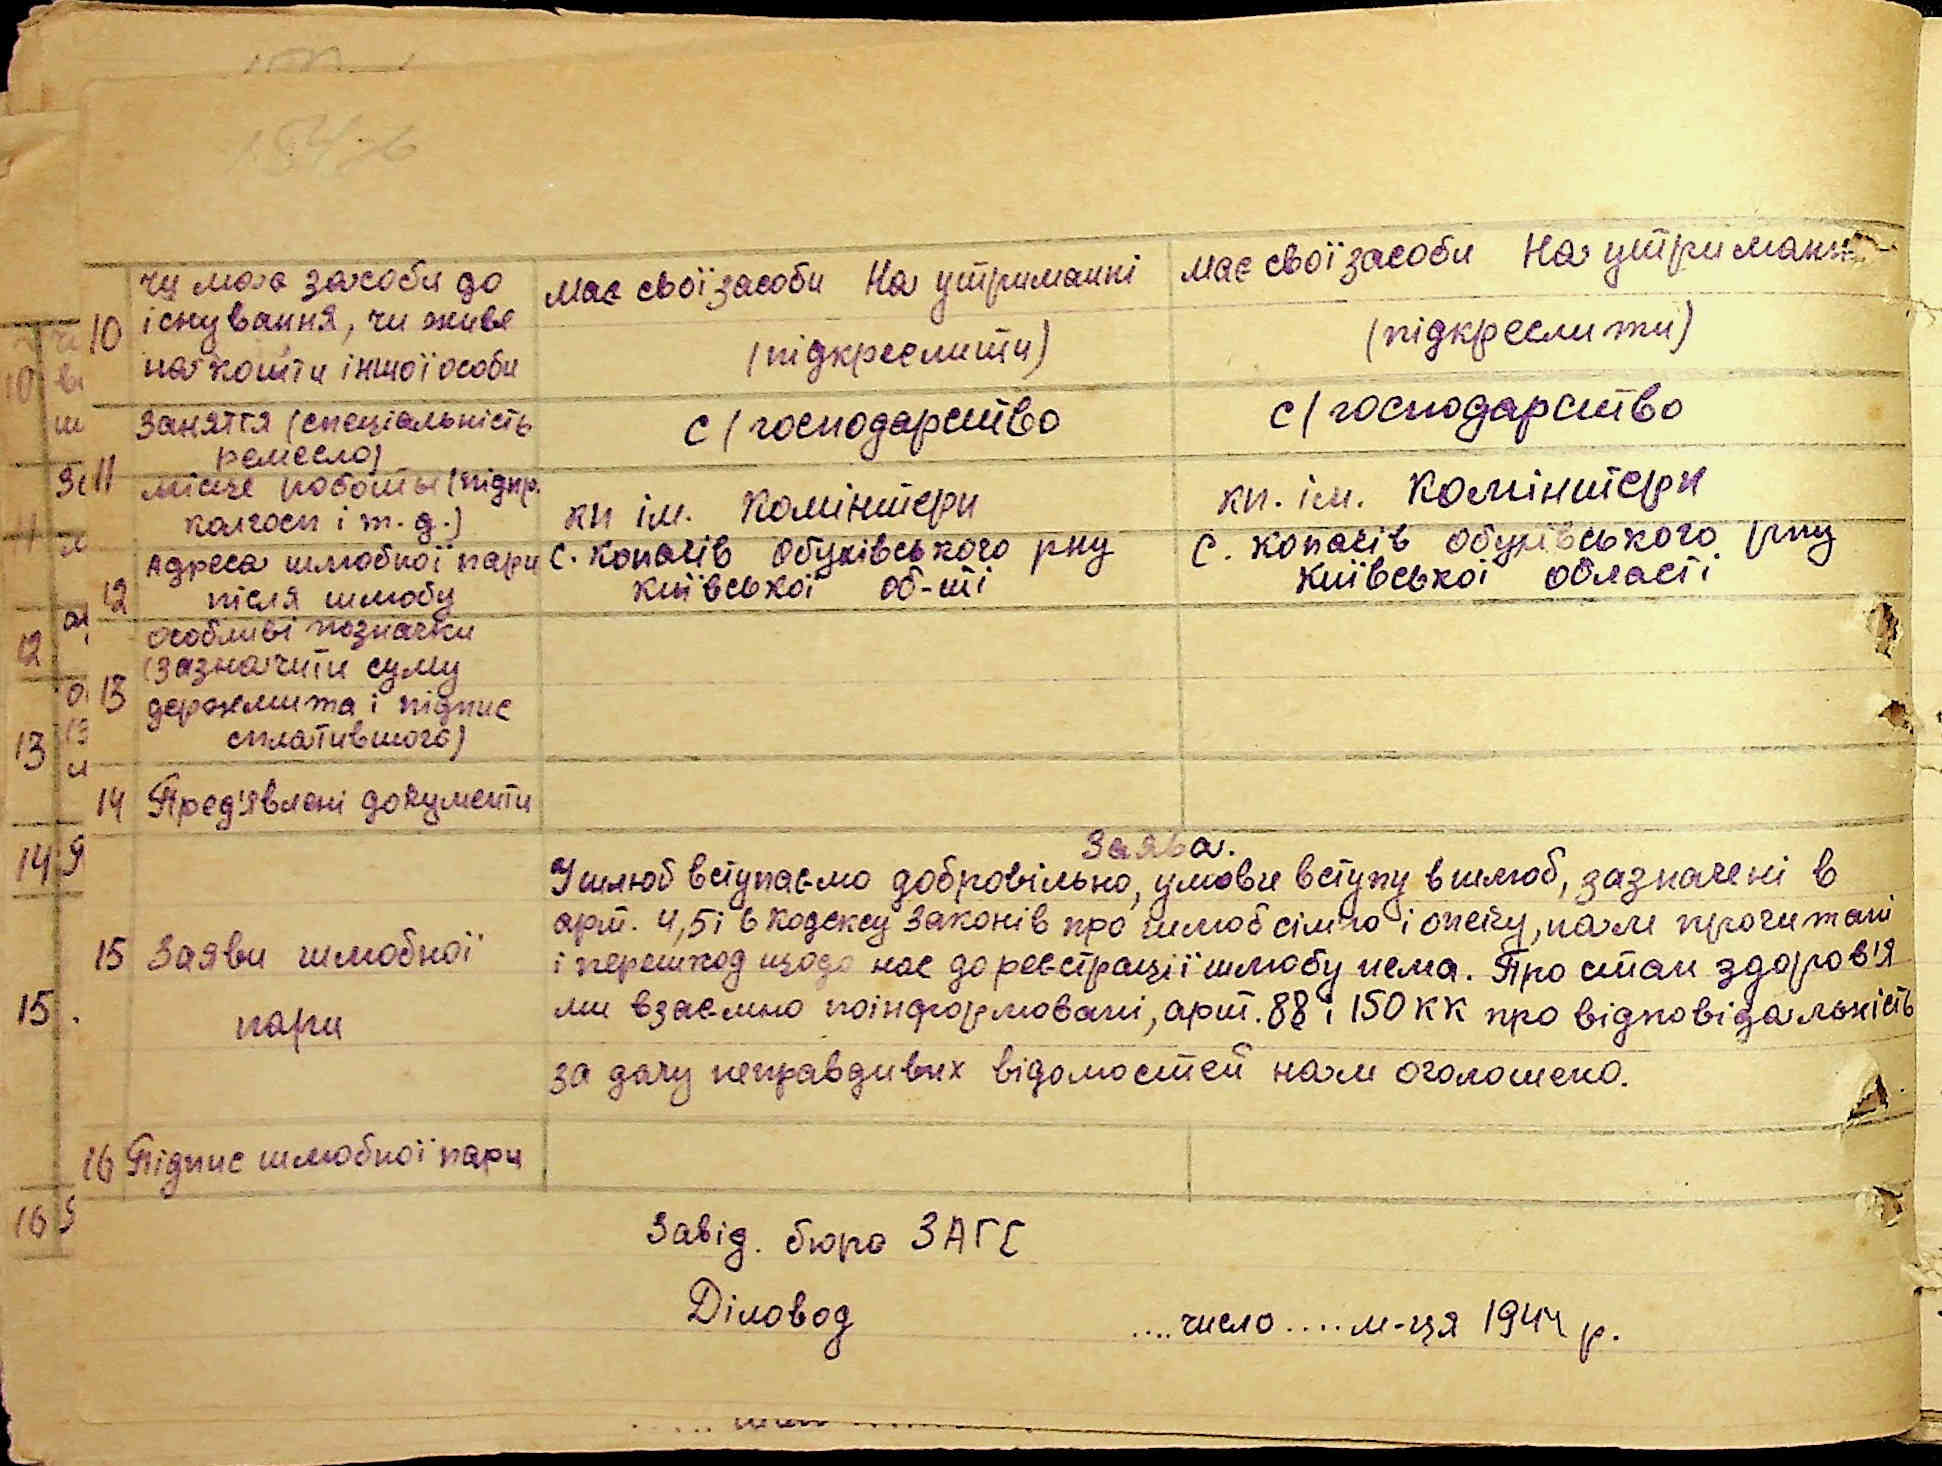 10
чи має засоби до
існування, чи живе
на кошти іншої особи
має свої засоби На утриманні
(підкреслити)
має свої засоби На утриманні
(підкреслити)
11
Заняття (спеціальність
ремесло)
с/господарство
с/господарство
місце роботы (підпр.
колгосп і т.д.)
кп ім. Комінтерн
кп. ім. Комінтерн
12
Адреса шлюбної пари
після шлюбу
с. Копачів Обухівського рну
Київської об-ті
с. Копачів Обухівського рну
Київської області
13
особливі позначки
(зазначити суму
держмита і підпис
сплатившого)
14 Пред'явлені документи
15 Заяви шлюбної
пари
Заява.
У шлюб вступаємо добровільно, умови вступу в шлюб, зазначені в
арт. 4,5 і 6 Кодексу Законів про шлюб сім'ю і опеку, нам прочитані
і перешкод щодо нас до реєстрації шлюбу нема. Про стан здоров'я
ми взаємно поінформовані, арт. 88 і 150 КК про відповідальність
за дачу неправдивих відомостей нам оголошено.
16 Підпис шлюбної пари
Завід. бюро ЗАГС
Діловод
.... число ..... м-ця 1944 р.
10
11
12
13
14
15
16